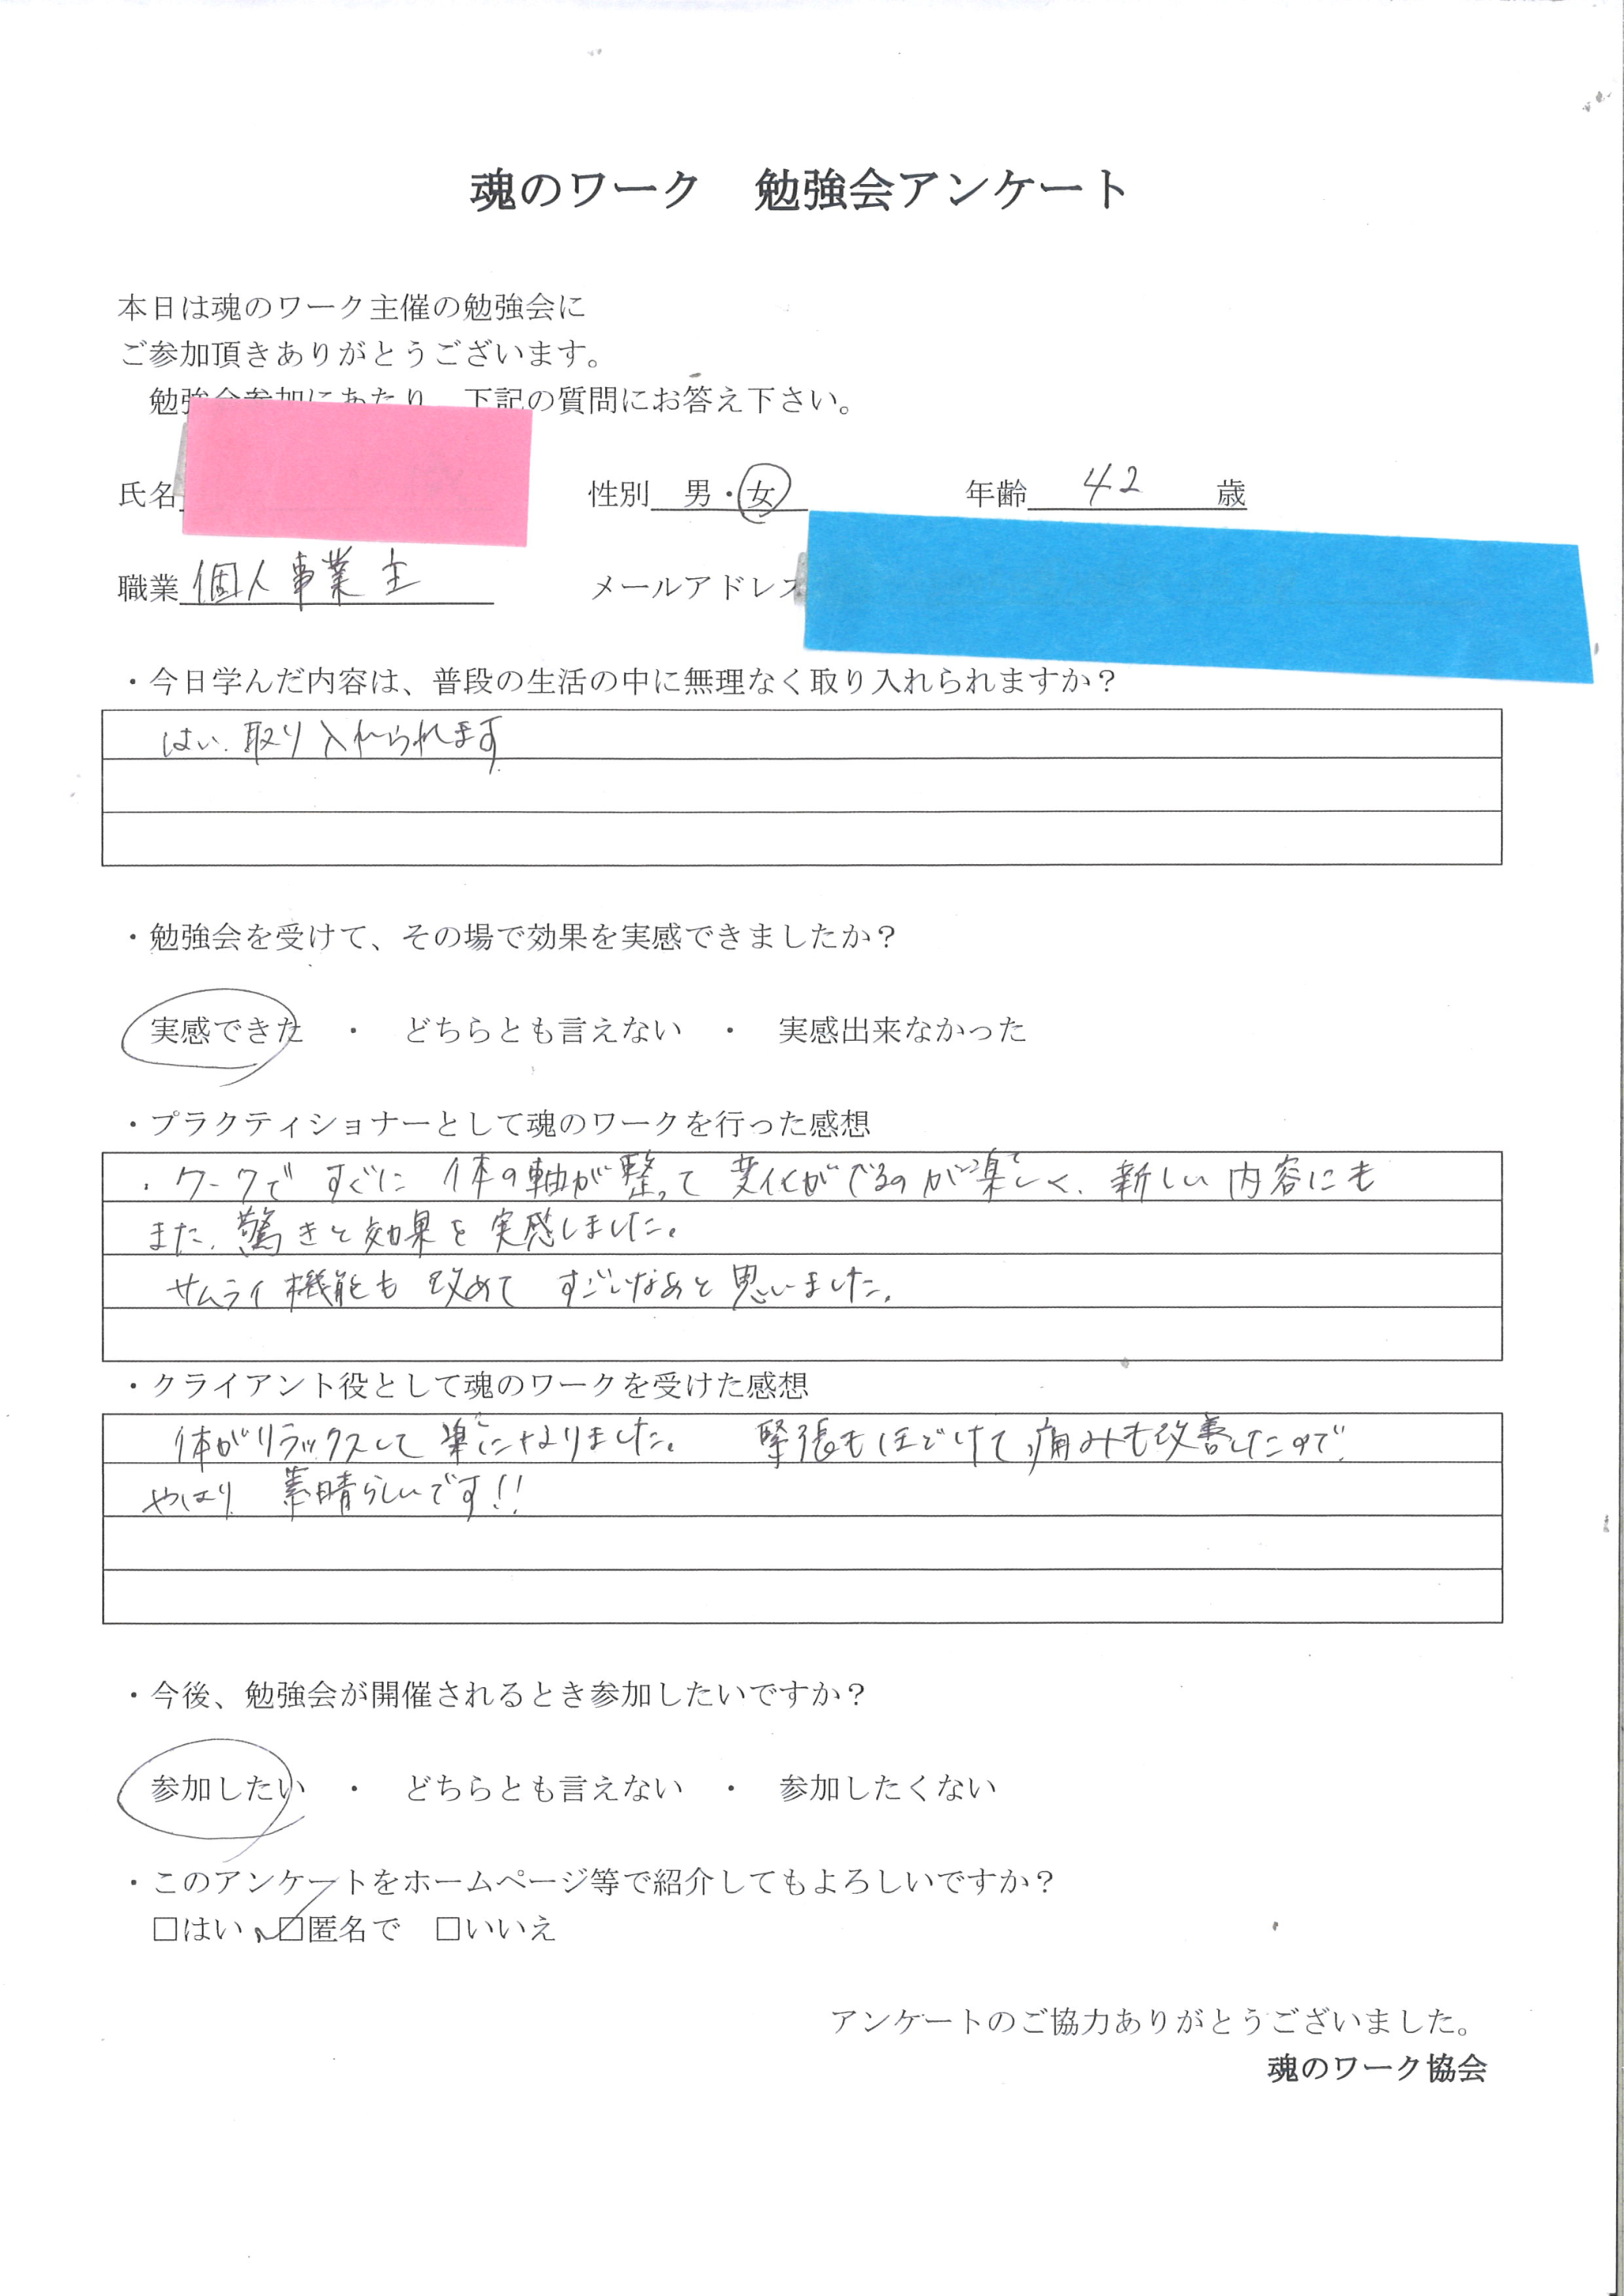 魂のワーク　勉強会アンケート
本日は魂のワーク主催の勉強会に
ご参加頂きありがとうございます。
勉強会参加にあたり、下記の質問にお答え下さい。
氏名　性別　男・女　年齢 42 歳
職業 個人事業主　メールアドレス
・今日学んだ内容は、普段の生活の中に無理なく取り入れられますか？
はい、取り入れられます
・勉強会を受けて、その場で効果を実感できましたか？
実感できた　・　どちらとも言えない　・　実感出来なかった
・プラクティショナーとして魂のワークを行った感想
・ワークですぐに体の軸が整って変化がでるのが楽しく、新しい内容にも
また、驚きと効果を実感しました。
サムライ機能も改めてすごいなあと思いました。
・クライアント役として魂のワークを受けた感想
体がリラックスして楽になりました。　緊張もほどけて、痛みも改善したので、
やはり素晴らしいです!!
・今後、勉強会が開催されるとき参加したいですか？
参加したい　・　どちらとも言えない　・　参加したくない
・このアンケートをホームページ等で紹介してもよろしいですか？
□はい　☑匿名で　□いいえ
アンケートのご協力ありがとうございました。
魂のワーク協会